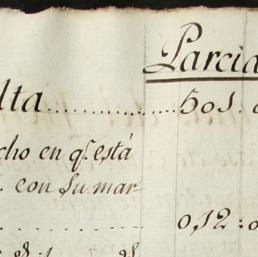 Parcia
lta.....................501.
cho en q.e está
con su mar
.....................012:0